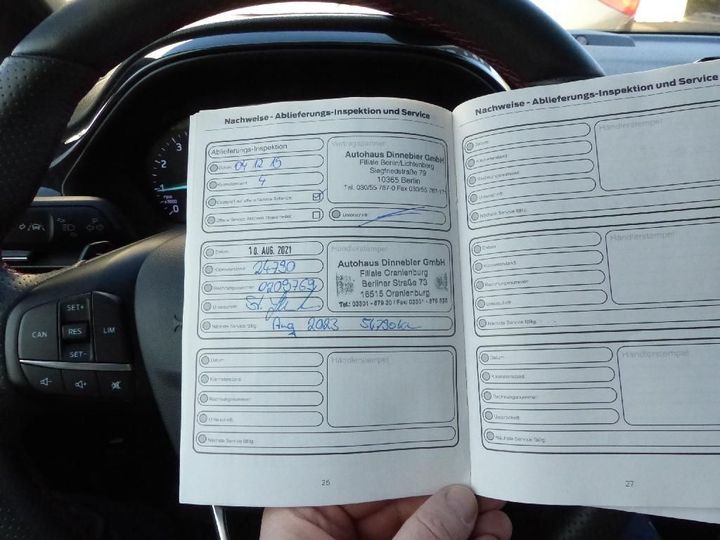 Nachweise - Ablieferungs-Inspektion und Service
Ablieferungs-Inspektion
Datum 04 12 19
Kilometerstand 4
Unterschrift
Vertragspartner
Autohaus Dinnebier GmbH
Filiale Berlin/Lichtenberg
Siegfriedstraße 79
10365 Berlin
Datum 10. AUG. 2021
Kilometerstand 24790
Rechnungsnummer 0209769
Unterschrift
Nächste Service fällig Aug 2023 54790km
Händlerstempel
Autohaus Dinnebier GmbH
Filiale Oranienburg
Berliner Straße 73
16515 Oranienburg
Datum
Kilometerstand
Rechnungsnummer
Unterschrift
Nächste Service fällig
Händlerstempel
26
Nachweise - Ablieferungs-Inspektion und Service
Datum
Kilometerstand
Rechnungsnummer
Unterschrift
Nächste Service fällig
Händlerstempel
Datum
Kilometerstand
Rechnungsnummer
Unterschrift
Nächste Service fällig
Händlerstempel
Datum
Kilometerstand
Rechnungsnummer
Unterschrift
Nächste Service fällig
Händlerstempel
27
CAN
SET+
RES
SET-
LIM
3
2
1
0